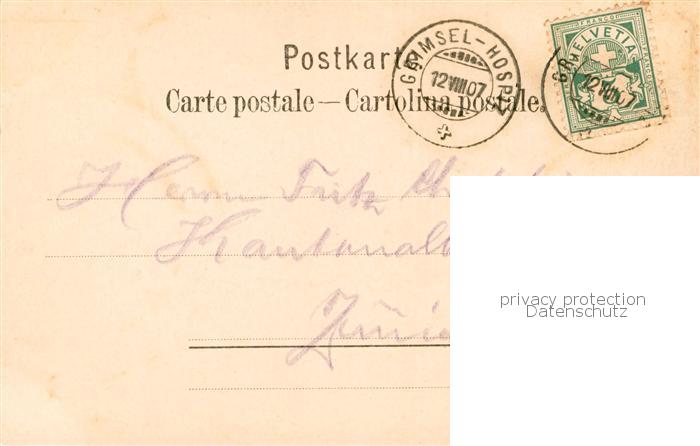 Postkarte
GRIMSEL-HOSPIZ
12 VIII 07
FRANCO
HELVETIA
GR
12 VIII 07
Carte postale — Cartolina postale.
Herrn Fritz
privacy protection
Datenschutz